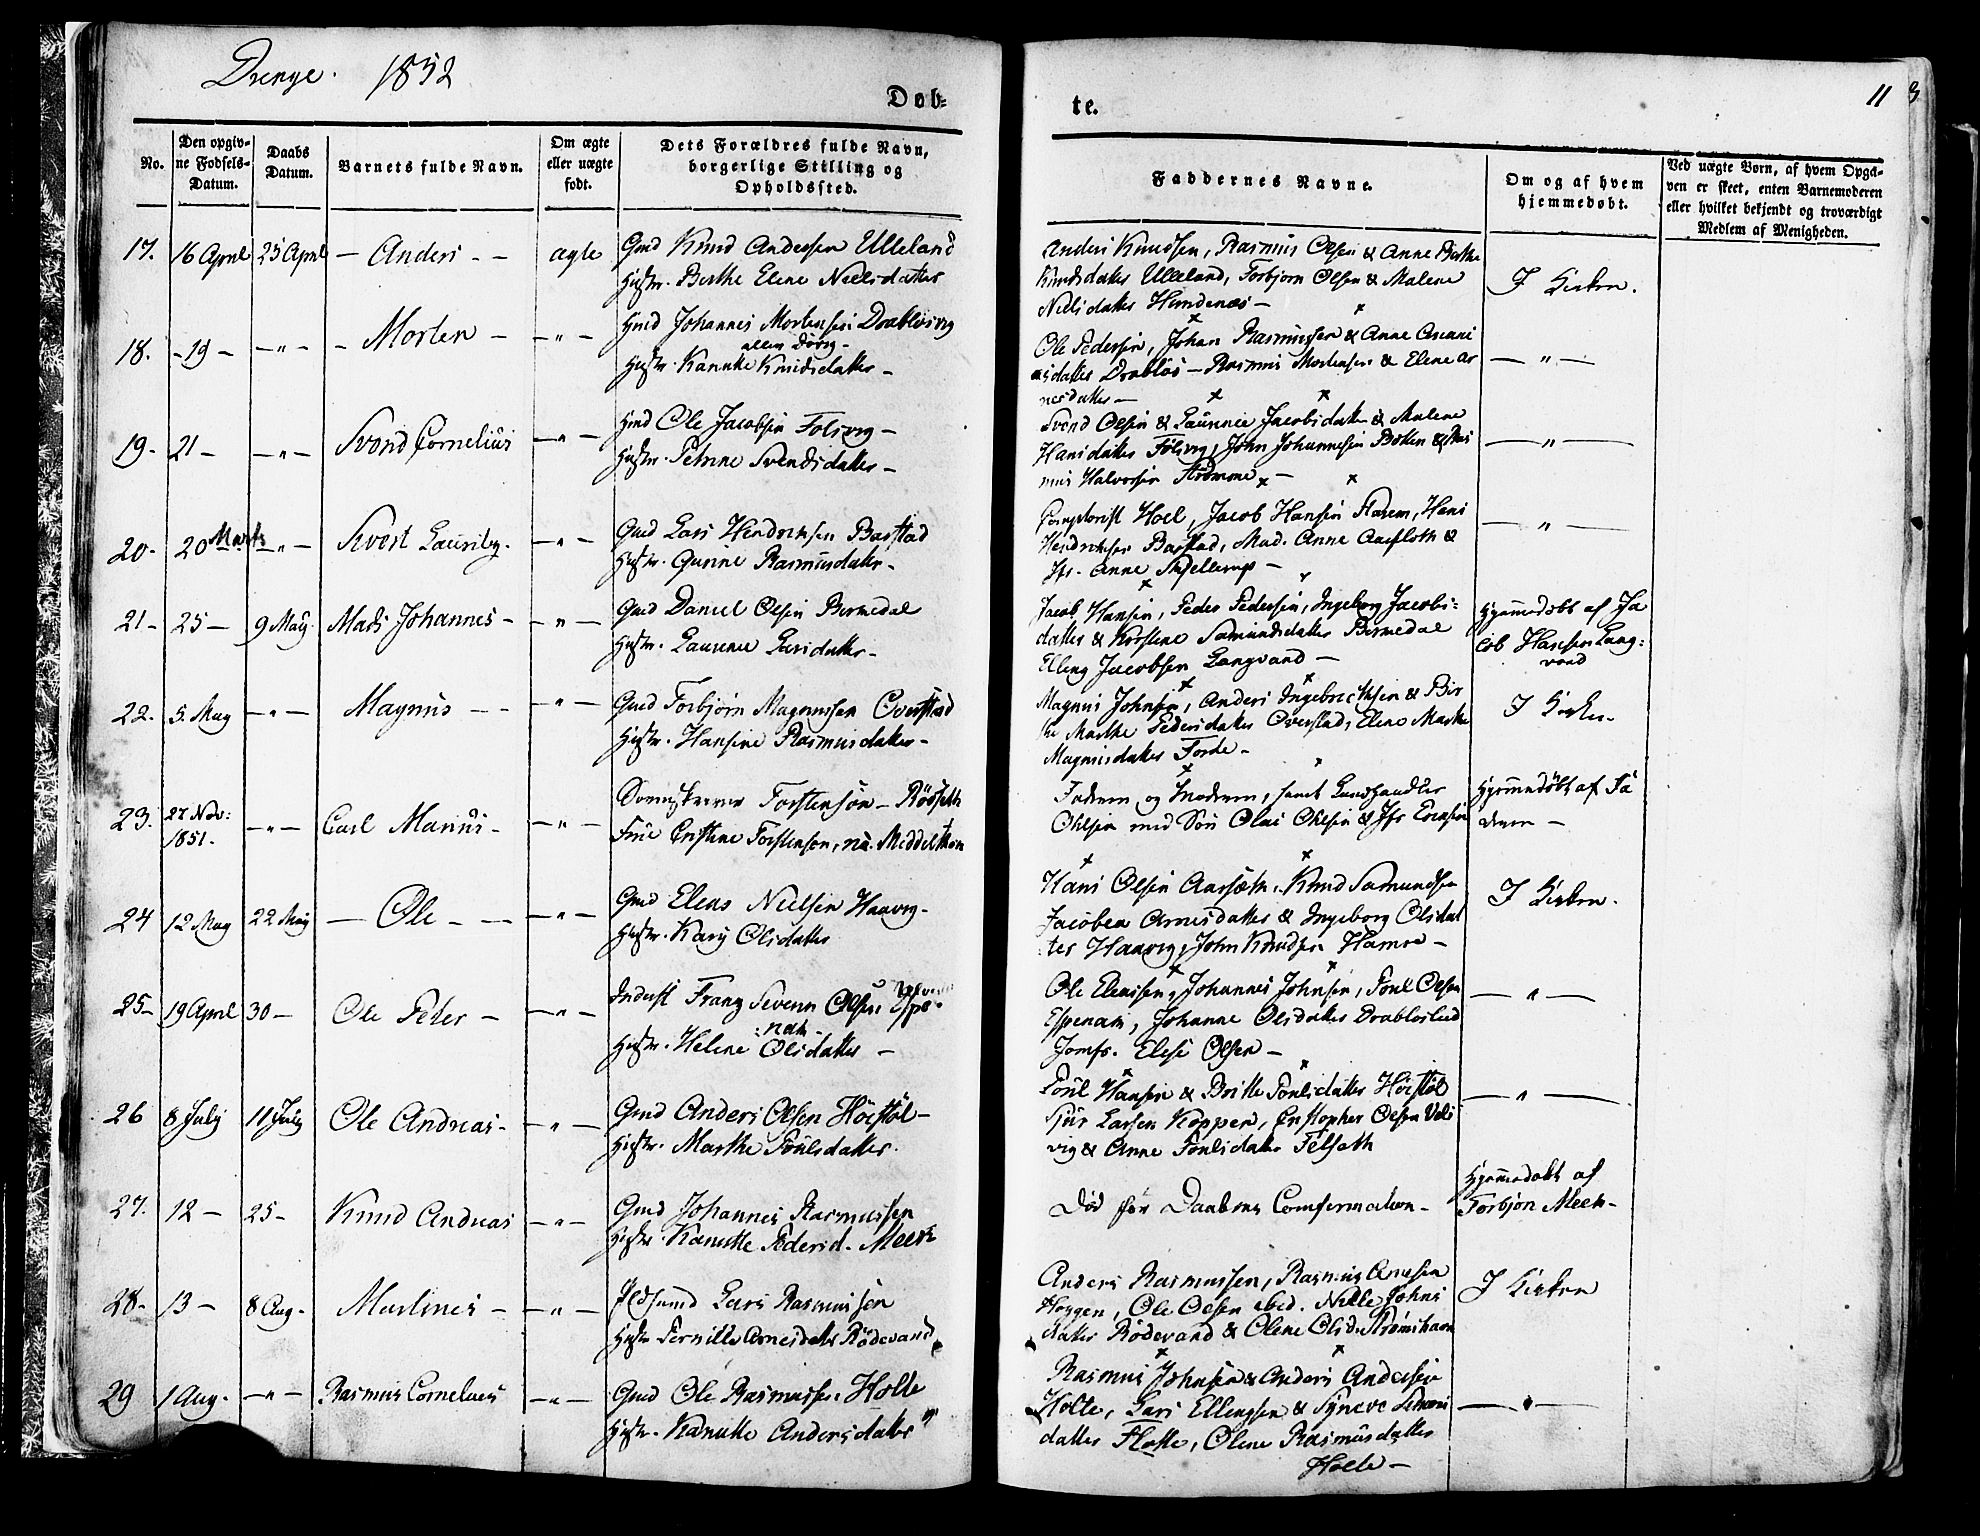 Drenge. 1852
Døb=
te.
11
No.
Den opgiv=
ne Fødsels=
Datum.
Daabs
Datum.
Barnets fulde Navn.
Om ægte
eller uægte
født.
Dets Forældres fulde Navn,
borgerlige Stilling og
Opholdssted.
Faddernes Navne.
Om og af hvem
hjemmedøbt.
Ved uægte Børn, af hvem Opga=
ven er skeet, enten Barnemoderen
eller hvilket bekjendt og troværdigt
Medlem af Menigheden.
17. 16 April 25 April — Anders - - ægte
Gmd Knud Andersen Ulleland
Hustr. Berthe Elene Nielsdatter
Anders Knudsen, Rasmus Olsen & Anne Berthe
Knudsdatter Ulleland, Torbjørn Olsen & Malene
Nielsdatter Hendenæs —
I Kirken.
18. - 19 - — " — - Morten - — " —
Hmd Johannes Mortensen Drabløsvig
Hustr. Kanutte Knudsdatter -
Ole Pedersen, Johan Rasmussen & Anne
datter Drabløs — Rasmus Mortensen & Elene Ar
nesdatter —
— " —
19 - 21 - — " — Svend Cornelius — " —
Hmd Ole Jacobsen Folsvig —
Hustr. Petrine Svendsdatter —
Svend Olsen & Laurence Jacobsdatter & Malene
Hansdatter Følsvig, John Johannesen & Ras
mus Halvorsen Strømme —
— " —
20 - 20 Marts — " — Sivert Lauritz. — " —
Gmd Lars Hendriksen Barstad
Hustr. Gurine Rasmusdatter —
Hoel, Jacob Hansen Farem, Hans
Hendriksen Barstad, Mad. Anne Aarfloth &
Jfr. Anne Skjellerup —
— " —
21 - 25 — 9 May. Mads Johannes - — " —
Gmd Daniel Olsen Birmedal
Hustr. Laurence Larsdatter —
Jacob Hansen, Peder Pedersen, Ingeborg Jacobs=
datter & Kirstine Samundsdatter Birmedal
Elling Jacobsen Langvand —
Hjemmedøbt af Ja
cob Hansen Lang=
vand
22. 5. May — " — Magnus - - — " —
Gmd Torbjørn Magnussen Overstad
Hustr. Hansine Rasmusdatter —
Magnus Johnsen, Anders Ingebrechtsen & Bir
the Marthe Pedersdatter Overstad, Elene Marthe
Magnusdatter Forde —
I Kirken.
23. 27 Nov: 1851. — " — Carl Marius — — " —
Sorenskriver Torstensøn — Rødseth
Frue Cristine Torstensen, né. Middelthon
Faderen og Moderen, samt Landhandler
Ohlsen med Søn Olai Ohlsen & Jfr
Hjemmedøbt af Fa
deren —
24 12 May 22 May — Ole - — — " —
Gmd Elias Nielsen Haavig —
Hustr. Kari Olsdatter
Hans Olsen Aarsæth, Knud Samundsen
Jacobea Arnesdatter & Ingeborg Olsdat
ter Haavig, John Knudsen Hamre —
I Kirken.
25 - 19 April 30 — Ole Peter — — " —
Inderst Franz Severin Olsen Espe=
nam
Hustr. Helene Olsdatter —
Ole Eleusen, Johannes Johnsen, Poul Olsen
Espenam, Johanne Olsdatter Drabløslied
Jomfr. Elise Olsen —
— " —
26 8 July 11 July Ole Andreas - — " —
Gmd Anders Olsen Høistøl —
Hustr. Marthe Poulsdatter.
Poul Hansen & Britte Poulsdatter Høistøl
Sjur Larsen Kopper, Cristopher Olsen
vig & Anne Poulsdatter
— " —
27. 12 — 25 - Knud Andreas — " —
Gmd Johannes Rasmussen
Hustr. Kanutte Pedersd. Meek
Død før Daabens Comfermation —
Hjemmedøbt af
Torbjøn Meek —
28 - 13 — 8 Aug - Martines — — " —
Pladsmd Lars Rasmussen
Hustr Pernille Arnesdatter Rødevand
Anders Rasmussen, Rasmus Arnesen
Hoggen, Ole Olsen ibid. Nille Johns
datter Rødevand & Olene Olsd. Strømshavn
I Kirken
29 1 Aug. — " — Rasmus Cornelius — " —
Gmd Ole Rasmussen Holte
Hustr. Kanutte Andersdatter "
Rasmus Johnsen & Anders Andersen
Holte, Lars Ellingsen & Syneve
datter Flatte, Olene Rasmusdatter
Holte —
— " —